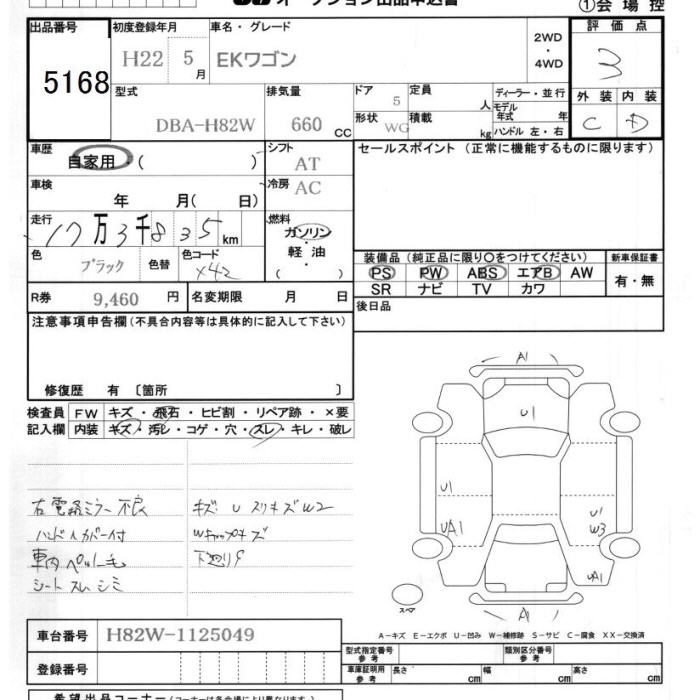 オークション出品申込書
①会場控
出品番号 初度登録年月 車名・グレード 評価点
5168 H22 5月 EKワゴン 2WD・4WD 3
型式 排気量 ドア 定員 ディーラー・並行 外装 内装
DBA-H82W 660cc 5 人 モデル年式 年 C D
形状 積載
WG kg ハンドル 左・右
車歴 シフト セールスポイント(正常に機能するものに限ります)
自家用・( ) AT
車検 冷房
年 月( 日) AC
走行 燃料
17万3千835km ガソリン・軽油・( )
色 色替 色コード 装備品(純正品に限り○をつけてください) 新車保証書
ブラック X42 PS PW ABS エアB AW 有・無
SR ナビ TV カワ
R券 9,460円 名変期限 月 日 後日品
注意事項申告欄(不具合内容等は具体的に記入して下さい)
修復歴 有 〔箇所 〕
検査員 FW キズ・飛石・ヒビ割・リペア跡・×要
記入欄 内装 キズ・汚レ・コゲ・穴・スレ・キレ・破レ
A1
U1
U1 U1
UA1 W3
UA1
A1
スペア
右電格ミラー不良 キズ U スリキズ W2
ハンドルカバー付 Wキャップキズ
車内ペット毛 下廻りサ
シートスレシミ
A-キズ E-エクボ U-凹み W-補修跡 S-サビ C-腐食 XX-交換済
車台番号 H82W-1125049
型式指定番号 参考 類別区分番号 参考
登録番号 車庫証明用 参考 長さ cm 幅 cm 高さ cm
希望出品コーナー(コーナーは各会場により異なります)